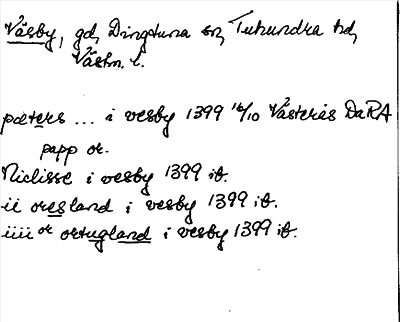 Väsby, gd, Dingtuna sn, Tuhundra hd,
Västm. l.
pæters ... i vesby 1399 16/10 Västerås DaRA
papp or.
Niclisse i vesby 1399 ib.
ii oresland i vesby 1399 ib.
iiii or ortugland i vesby 1399 ib.